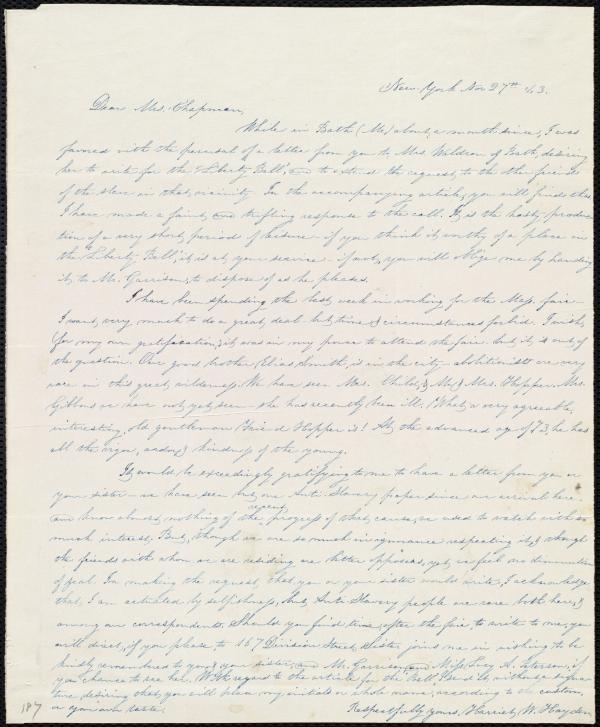 New-York Nov 27th 43.
Dear Mrs. Chapman,
While in Bath (Me) about a month since, I was
favored with the perusal of a letter from you to Mrs. Wildren of Bath, desiring
her to write for the "Liberty Bell", and to extend the request to the other friends
of the slave in that vicinity. In the accompanying article, you will find that
I have made a faint, and trifling response to the call. It is the hasty produc-
tion of a very short period of leisure - if you think it worthy of a place in
the "Liberty Bell," it is at your service - if not, you will oblige me by handing
it to Mr. Garrison, to dispose of as he pleases.
I have been spending the last week in working for the Mass. fair -
I want very much to do a great deal but time & circumstances forbid. I wish,
(for my own gratification,) it was in my power to attend the fair - but it is out of
the question. Our good brother Elias Smith, is in the city - abolitionists are very
rare in this great wilderness. We have seen Mrs. Child, & Mr. & Mrs. Hopper. Mrs.
Gibbons we have not yet seen - she has recently been ill. What a very agreeable,
interesting, old gentleman Friend Hopper is! At the advanced age of 73, he has
all the vigor, ardor, & kindness of the young.
It would be exceedingly gratifying to me to have a letter from you or
your sister - we have seen but one Anti Slavery paper since our arrival here,
and know almost nothing of the recent progress of that cause, we used to watch with so
much interest. But, though we are so much in ignorance respecting it, & though
the friends with whom we are residing are bitter opposers, yet, we feel no diminution
of zeal. In making the request, that you or your sister would write, I acknowledge
that, I am actuated by selfishness, but Anti-Slavery people are rare both here, &
among our correspondents. Should you find time, after the fair, to write to me, you
will direct, if you please to 167 Division Street. Sister joins me in wishing to be
kindly remembered to you, & your sister, and Mr. Garrison, and Miss Lucy A. if
you chance to see her. With regard to the article for the Bell I send it without a signa-
ture, desiring that you will place my initials or whole name, according to the custom,
or your own taste.
Respectfully yours, Harriet W. Hayden
187